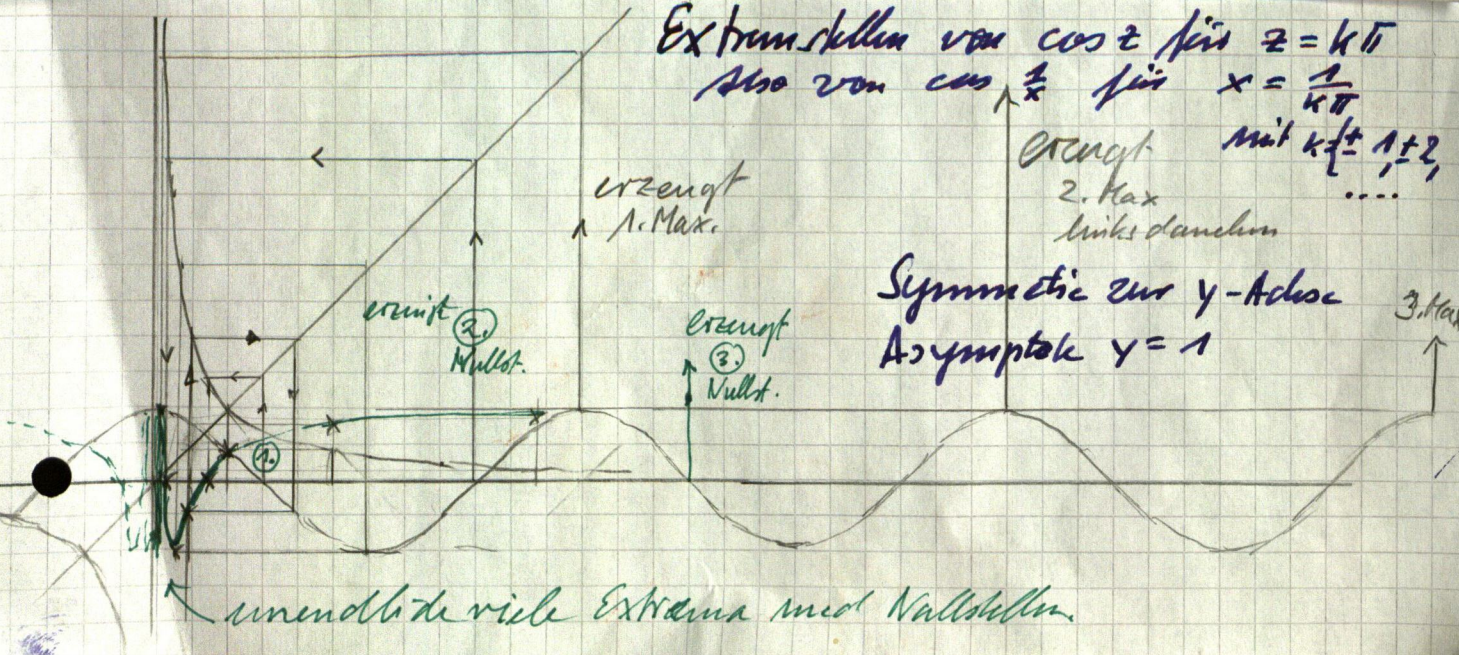 Extremstellen von cos z für z = kπ
Also von cos 1/x für x = 1/kπ
mit k{± 1, ± 2,
....
erzeugt
1. Max.
erzeugt
2. Max
links daneben
Symmetrie zur y-Achse
Asymptote y = 1
3. Max
erzeugt
2.
Nullst.
erzeugt
3.
Nullst.
1.
unendlich viele Extrema und Nullstellen